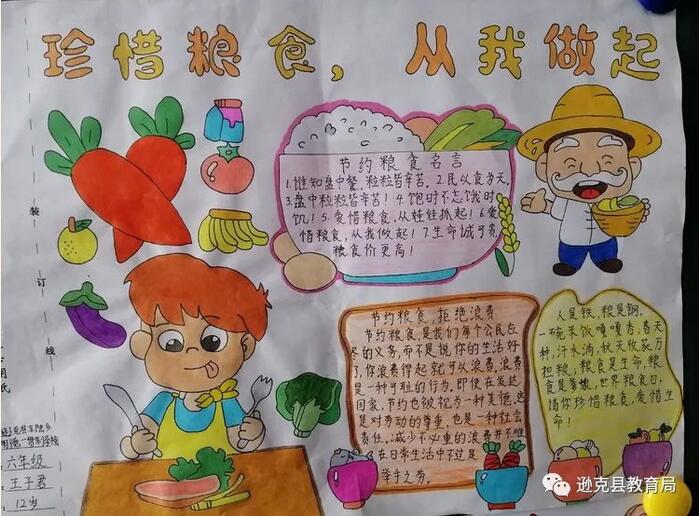 珍惜粮食，从我做起
节约粮食名言
1.谁知盘中餐，粒粒皆辛苦。2.民以食为天。
3.盘中粒粒皆辛苦！4.饱时不忘饿时
饥！5.爱惜粮食，从娃娃抓起！6.爱
惜粮食，从我做起！7.生命诚可贵，
粮食价更高！
节约粮食，拒绝浪费
节约粮食，是我们每个公民应
尽的义务，而不是说你的生活好
了，你浪费得起就可以浪费，浪费
是一种可耻的行为，即使在发达
国家，节约也被视为一种美德，这
是对劳动的尊重，也是一种社会
责任。减少不必重的浪费并不难，
在日常生活中不过是
举手之劳。
人是铁，粮是钢。
一碗米饭嘎嘎香，春天
种，汗水淌，秋天收获万
担粮，粮食是生命，粮
食是爹娘，世界粮食日，
请你珍惜粮食，爱惜生
命！
装
订
线
六年级
王子君
12岁
逊克县教育局